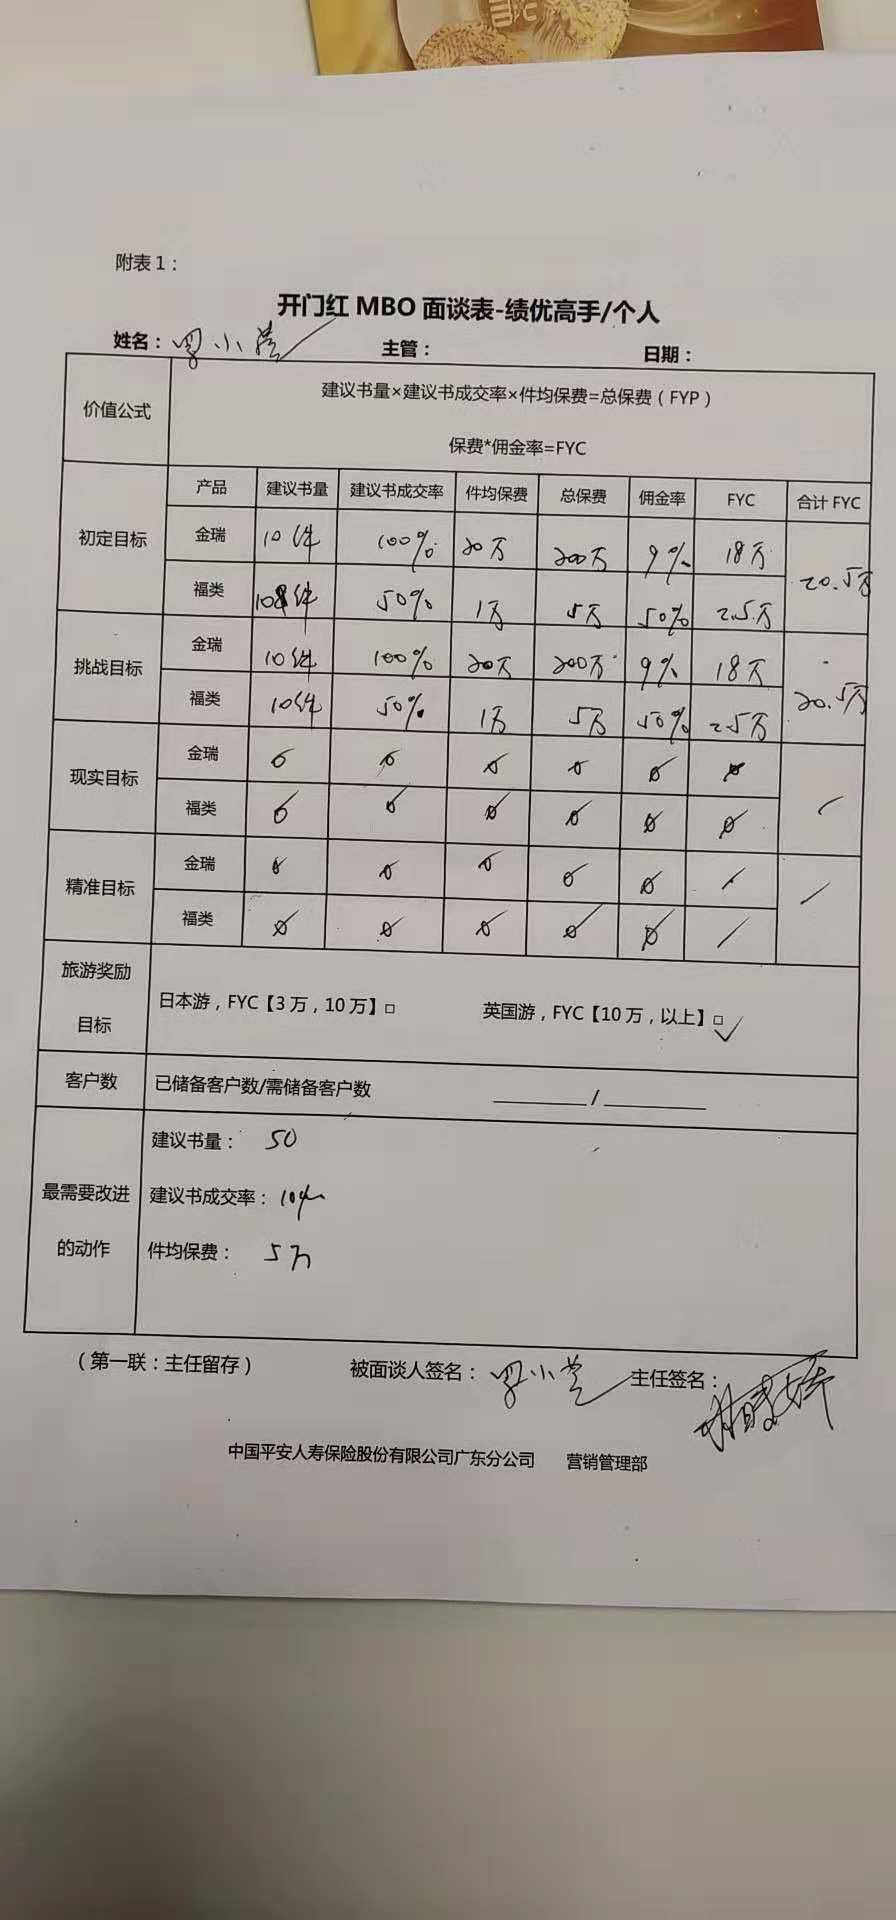 附表1：
开门红 MBO 面谈表-绩优高手/个人
姓名： 罗小 主管： 日期：
价值公式 建议书量×建议书成交率×件均保费=总保费（FYP）
保费*佣金率=FYC
产品 建议书量 建议书成交率 件均保费 总保费 佣金率 FYC 合计 FYC
初定目标 金瑞 10件 100% 20万 200万 9% 18万 20.5万
福类 10件 50% 1万 5万 50% 2.5万
挑战目标 金瑞 10件 100% 20万 200万 9% 18万 20.5万
福类 10件 50% 1万 5万 50% 2.5万
现实目标 金瑞 0 0 0 0 0 0 /
福类 0 0 0 0 0 0
精准目标 金瑞 0 0 0 0 0 / /
福类 0 0 0 0 0 /
旅游奖励目标 日本游，FYC【3万，10万】□ 英国游，FYC【10万，以上】□ ✓
客户数 已储备客户数/需储备客户数 ________/________
最需要改进的动作 建议书量： 50
建议书成交率：
件均保费： 5万
（第一联：主任留存） 被面谈人签名： 罗小 主任签名：
中国平安人寿保险股份有限公司广东分公司 营销管理部